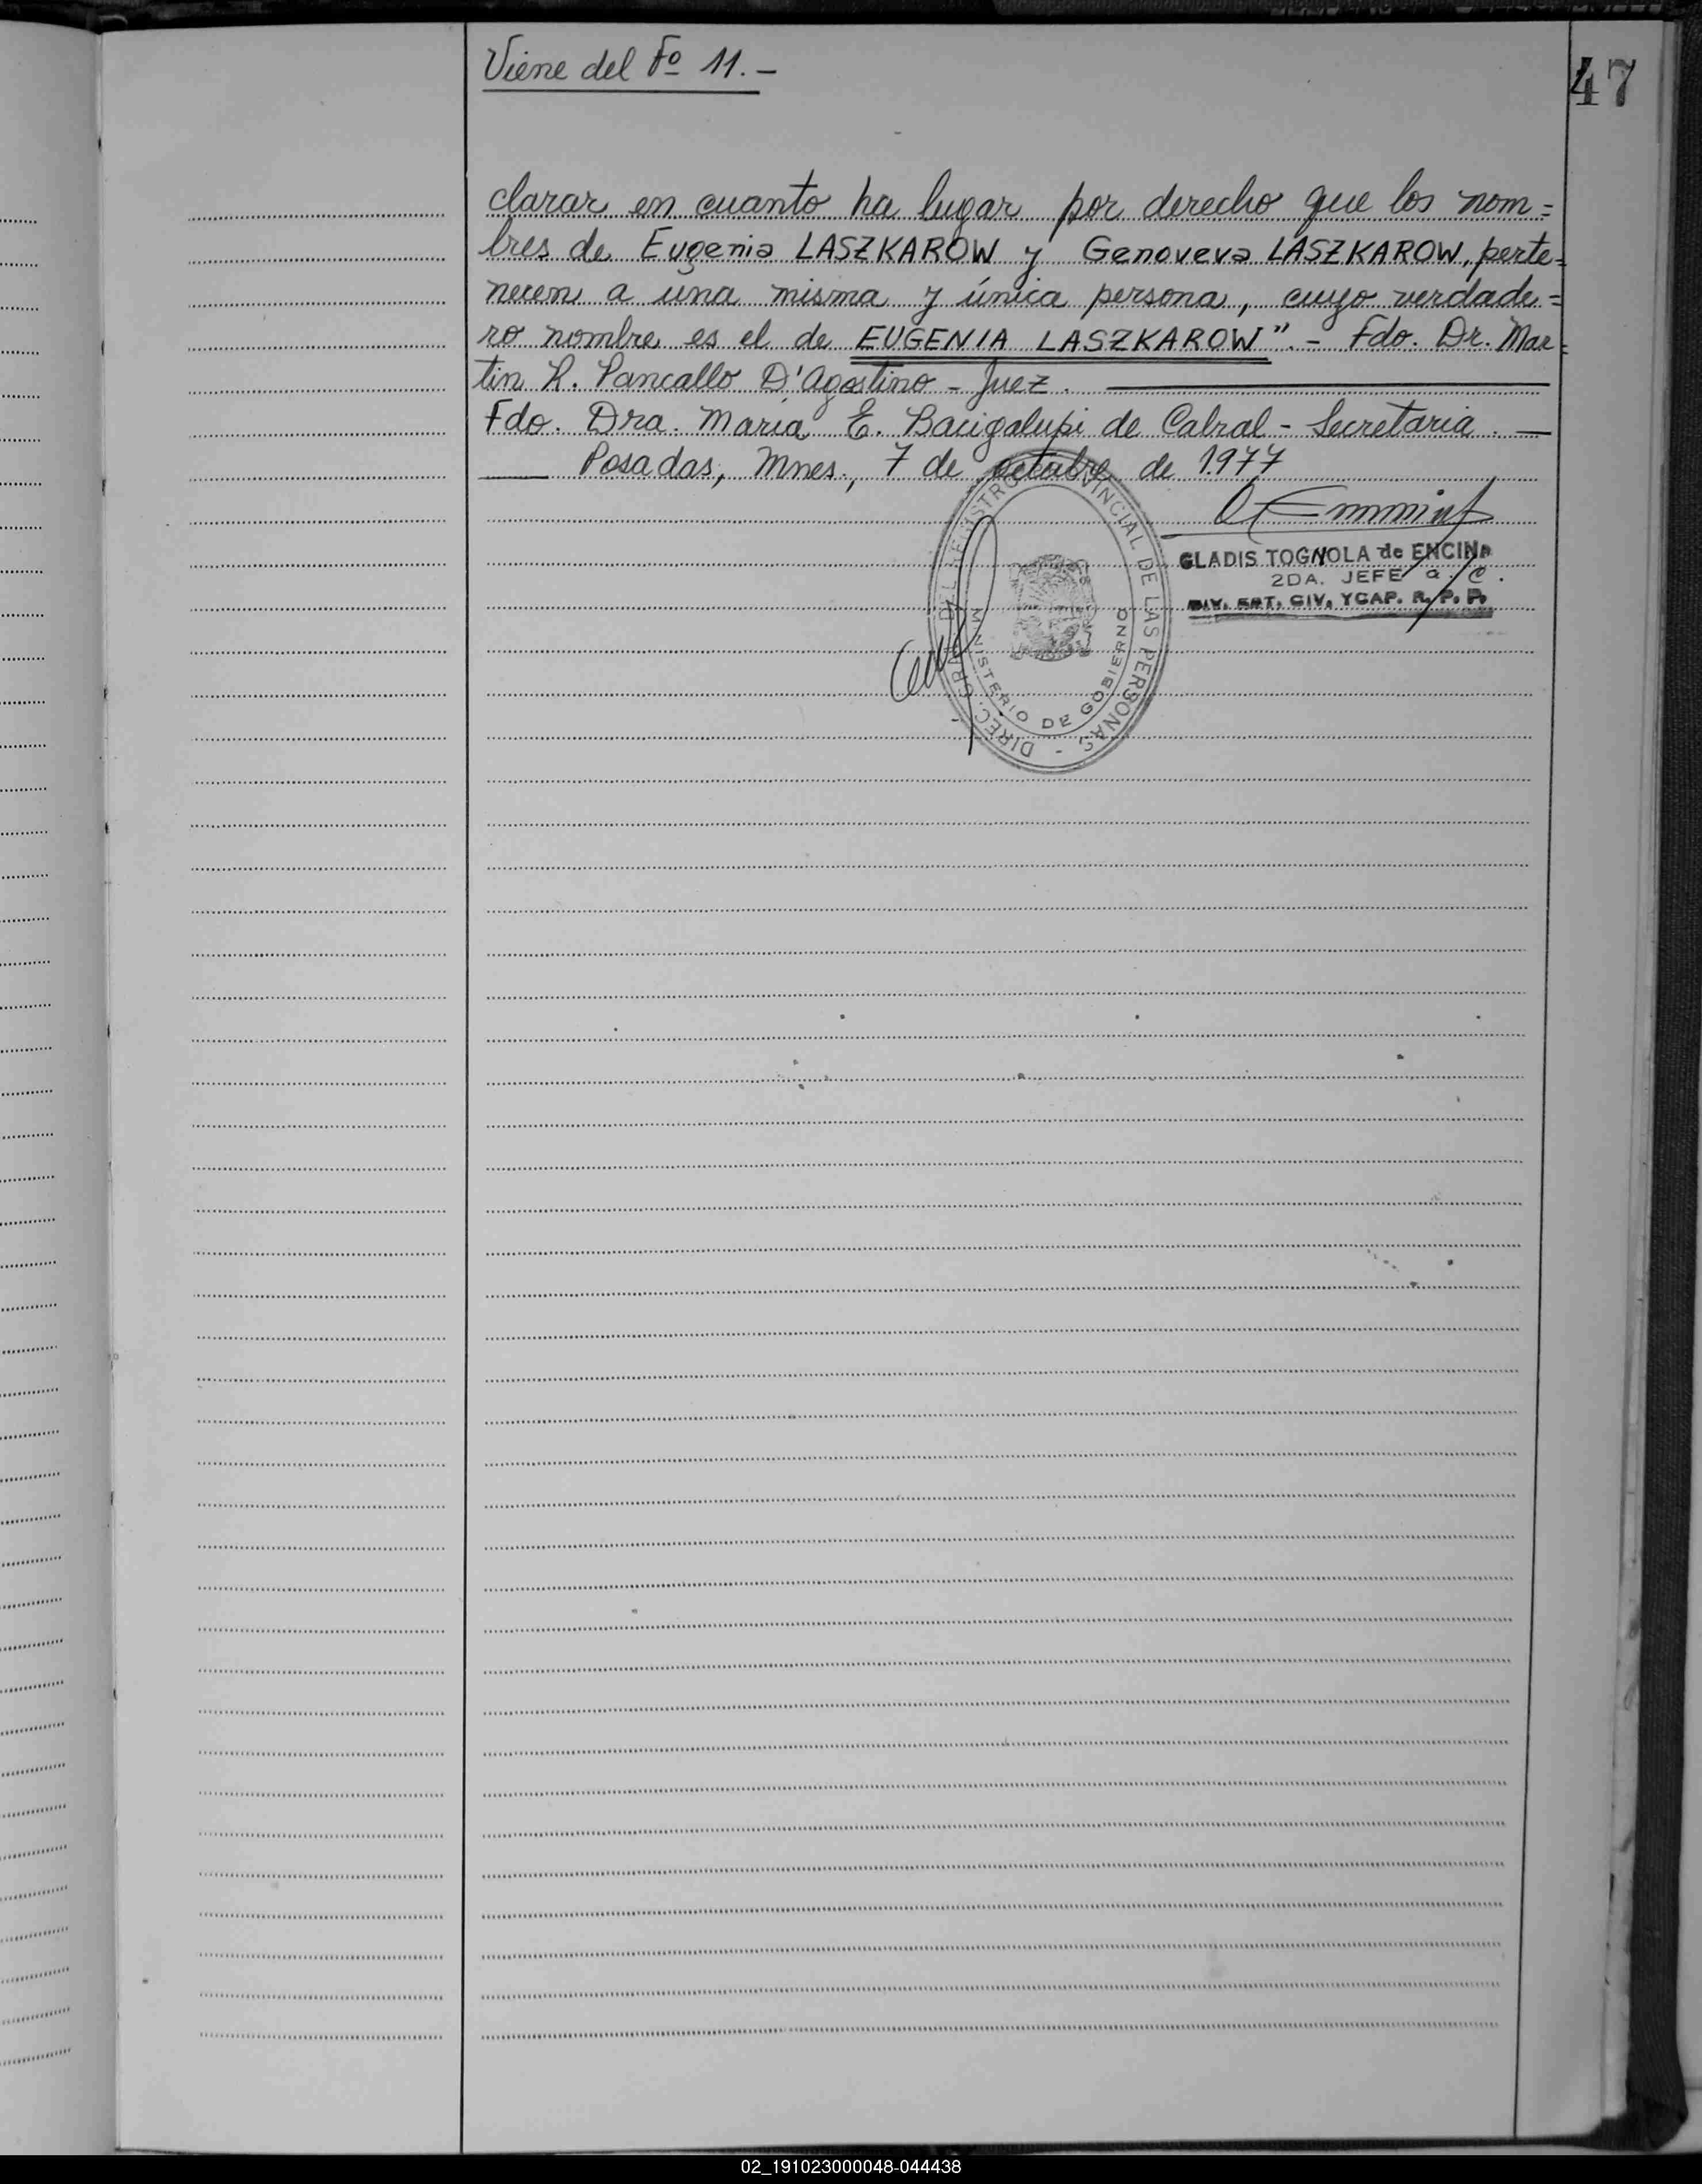 Viene del Fº 11.-
47
clarar en cuanto ha lugar por derecho que los nom=
bres de Eugenia LASZKAROW y Genoveva LASZKAROW, perte=
necen a una misma y única persona, cuyo verdade=
ro nombre es el de EUGENIA LASZKAROW".- Fdo. Dr. Mar=
tin R. Pancallo D'Agostino - Juez.
Fdo. Dra. María E. Bacigalupi de Cabral - Secretaria.
Posadas, Mnes., 7 de octubre de 1977
GLADIS TOGNOLA de ENCINA
2DA. JEFE a/C.
DIV. EST. CIV. YCAP. R. P. P.
DIREC. GRAL. DEL REGISTRO PROVINCIAL DE LAS PERSONAS -
MINISTERIO DE GOBIERNO
02_191023000048-044438